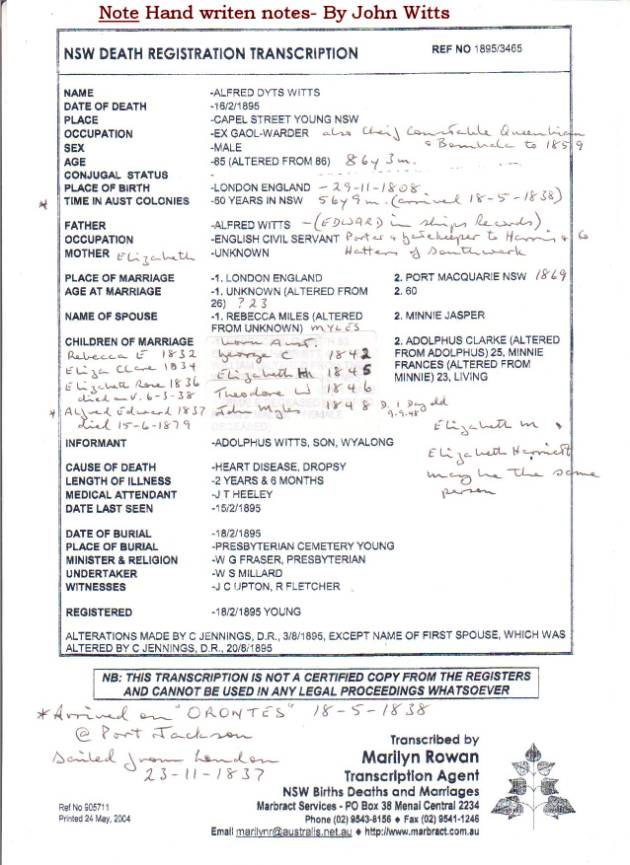 Note Hand writen notes- By John Witts
NSW DEATH REGISTRATION TRANSCRIPTION REF NO 1895/3465
NAME -ALFRED DYTS WITTS
DATE OF DEATH -16/2/1895
PLACE -CAPEL STREET YOUNG NSW
OCCUPATION -EX GAOL-WARDER also Cheif Constable Queenbian
SEX -MALE & Bombala to 1859
AGE -85 (ALTERED FROM 86) 86y 3m.
CONJUGAL STATUS -
PLACE OF BIRTH -LONDON ENGLAND - 29-11-1808
* TIME IN AUST COLONIES -50 YEARS IN NSW 56y 9m. (arrived 18-5-1838)
FATHER -ALFRED WITTS - (EDWARD in ships Records)
OCCUPATION -ENGLISH CIVIL SERVANT Porter & gatekeeper to Harris & Co
MOTHER Elizabeth -UNKNOWN Hatters of Southwark
PLACE OF MARRIAGE -1. LONDON ENGLAND 2. PORT MACQUARIE NSW 1869
AGE AT MARRIAGE -1. UNKNOWN (ALTERED FROM 2. 60
26) ? 23
NAME OF SPOUSE -1. REBECCA MILES (ALTERED 2. MINNIE JASPER
FROM UNKNOWN) MYLES
CHILDREN OF MARRIAGE born Aust. 2. ADOLPHUS CLARKE (ALTERED
Rebecca E 1832 George C 1842 FROM ADOLPHUS) 25, MINNIE
Eliza Clare 1834 Elizabeth M 1845 FRANCES (ALTERED FROM
Elizabeth Rose 1836 Theodore W 1846 MINNIE) 23, LIVING
died on V. 6-3-38 John Myles 1848 D. 1 Day old
* Alfred Edward 1837 9-9-48
died 15-6-1879 Elizabeth M &
INFORMANT -ADOLPHUS WITTS, SON, WYALONG
Elizabeth Harriett
CAUSE OF DEATH -HEART DISEASE, DROPSY may be the same
LENGTH OF ILLNESS -2 YEARS & 6 MONTHS person
MEDICAL ATTENDANT -J T HEELEY
DATE LAST SEEN -15/2/1895
DATE OF BURIAL -18/2/1895
PLACE OF BURIAL -PRESBYTERIAN CEMETERY YOUNG
MINISTER & RELIGION -W G FRASER, PRESBYTERIAN
UNDERTAKER -W S MILLARD
WITNESSES -J C UPTON, R FLETCHER
REGISTERED -18/2/1895 YOUNG
ALTERATIONS MADE BY C JENNINGS, D.R., 3/8/1895, EXCEPT NAME OF FIRST SPOUSE, WHICH WAS
ALTERED BY C JENNINGS, D.R., 20/8/1895
NB: THIS TRANSCRIPTION IS NOT A CERTIFIED COPY FROM THE REGISTERS
AND CANNOT BE USED IN ANY LEGAL PROCEEDINGS WHATSOEVER
* Arrived on "ORONTES" 18-5-1838
@ Port Jackson
Sailed from London
23-11-1837
Transcribed by
Marilyn Rowan
Transcription Agent
NSW Births Deaths and Marriages
Marbract Services - PO Box 38 Menai Central 2234
Phone (02) 9543-8156 ♦ Fax (02) 9541-1246
Email marilynr@australis.net.au ♦ http://www.marbract.com.au
Ref No 905711
Printed 24 May, 2004